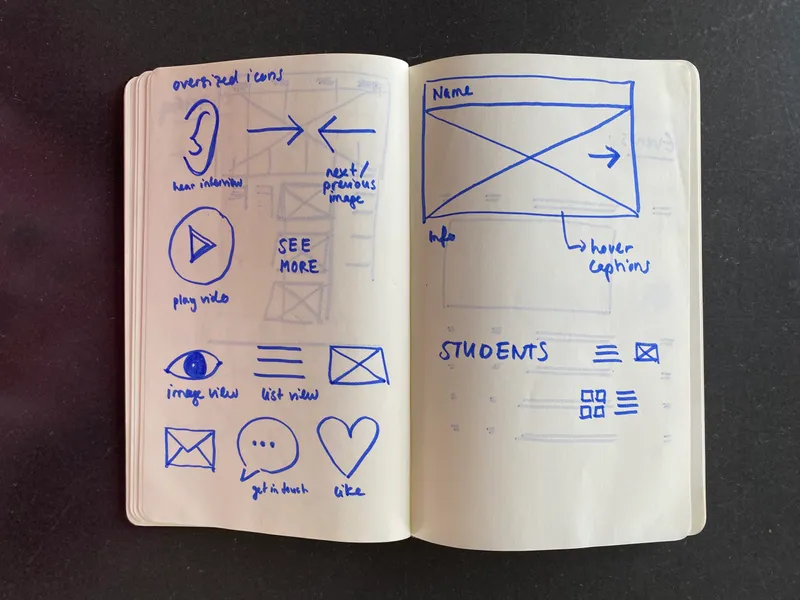 oversized icons
hear interview
next/
previous
image
play video
SEE
MORE
image view
list view
get in touch
like
Name
Info
hover
captions
STUDENTS